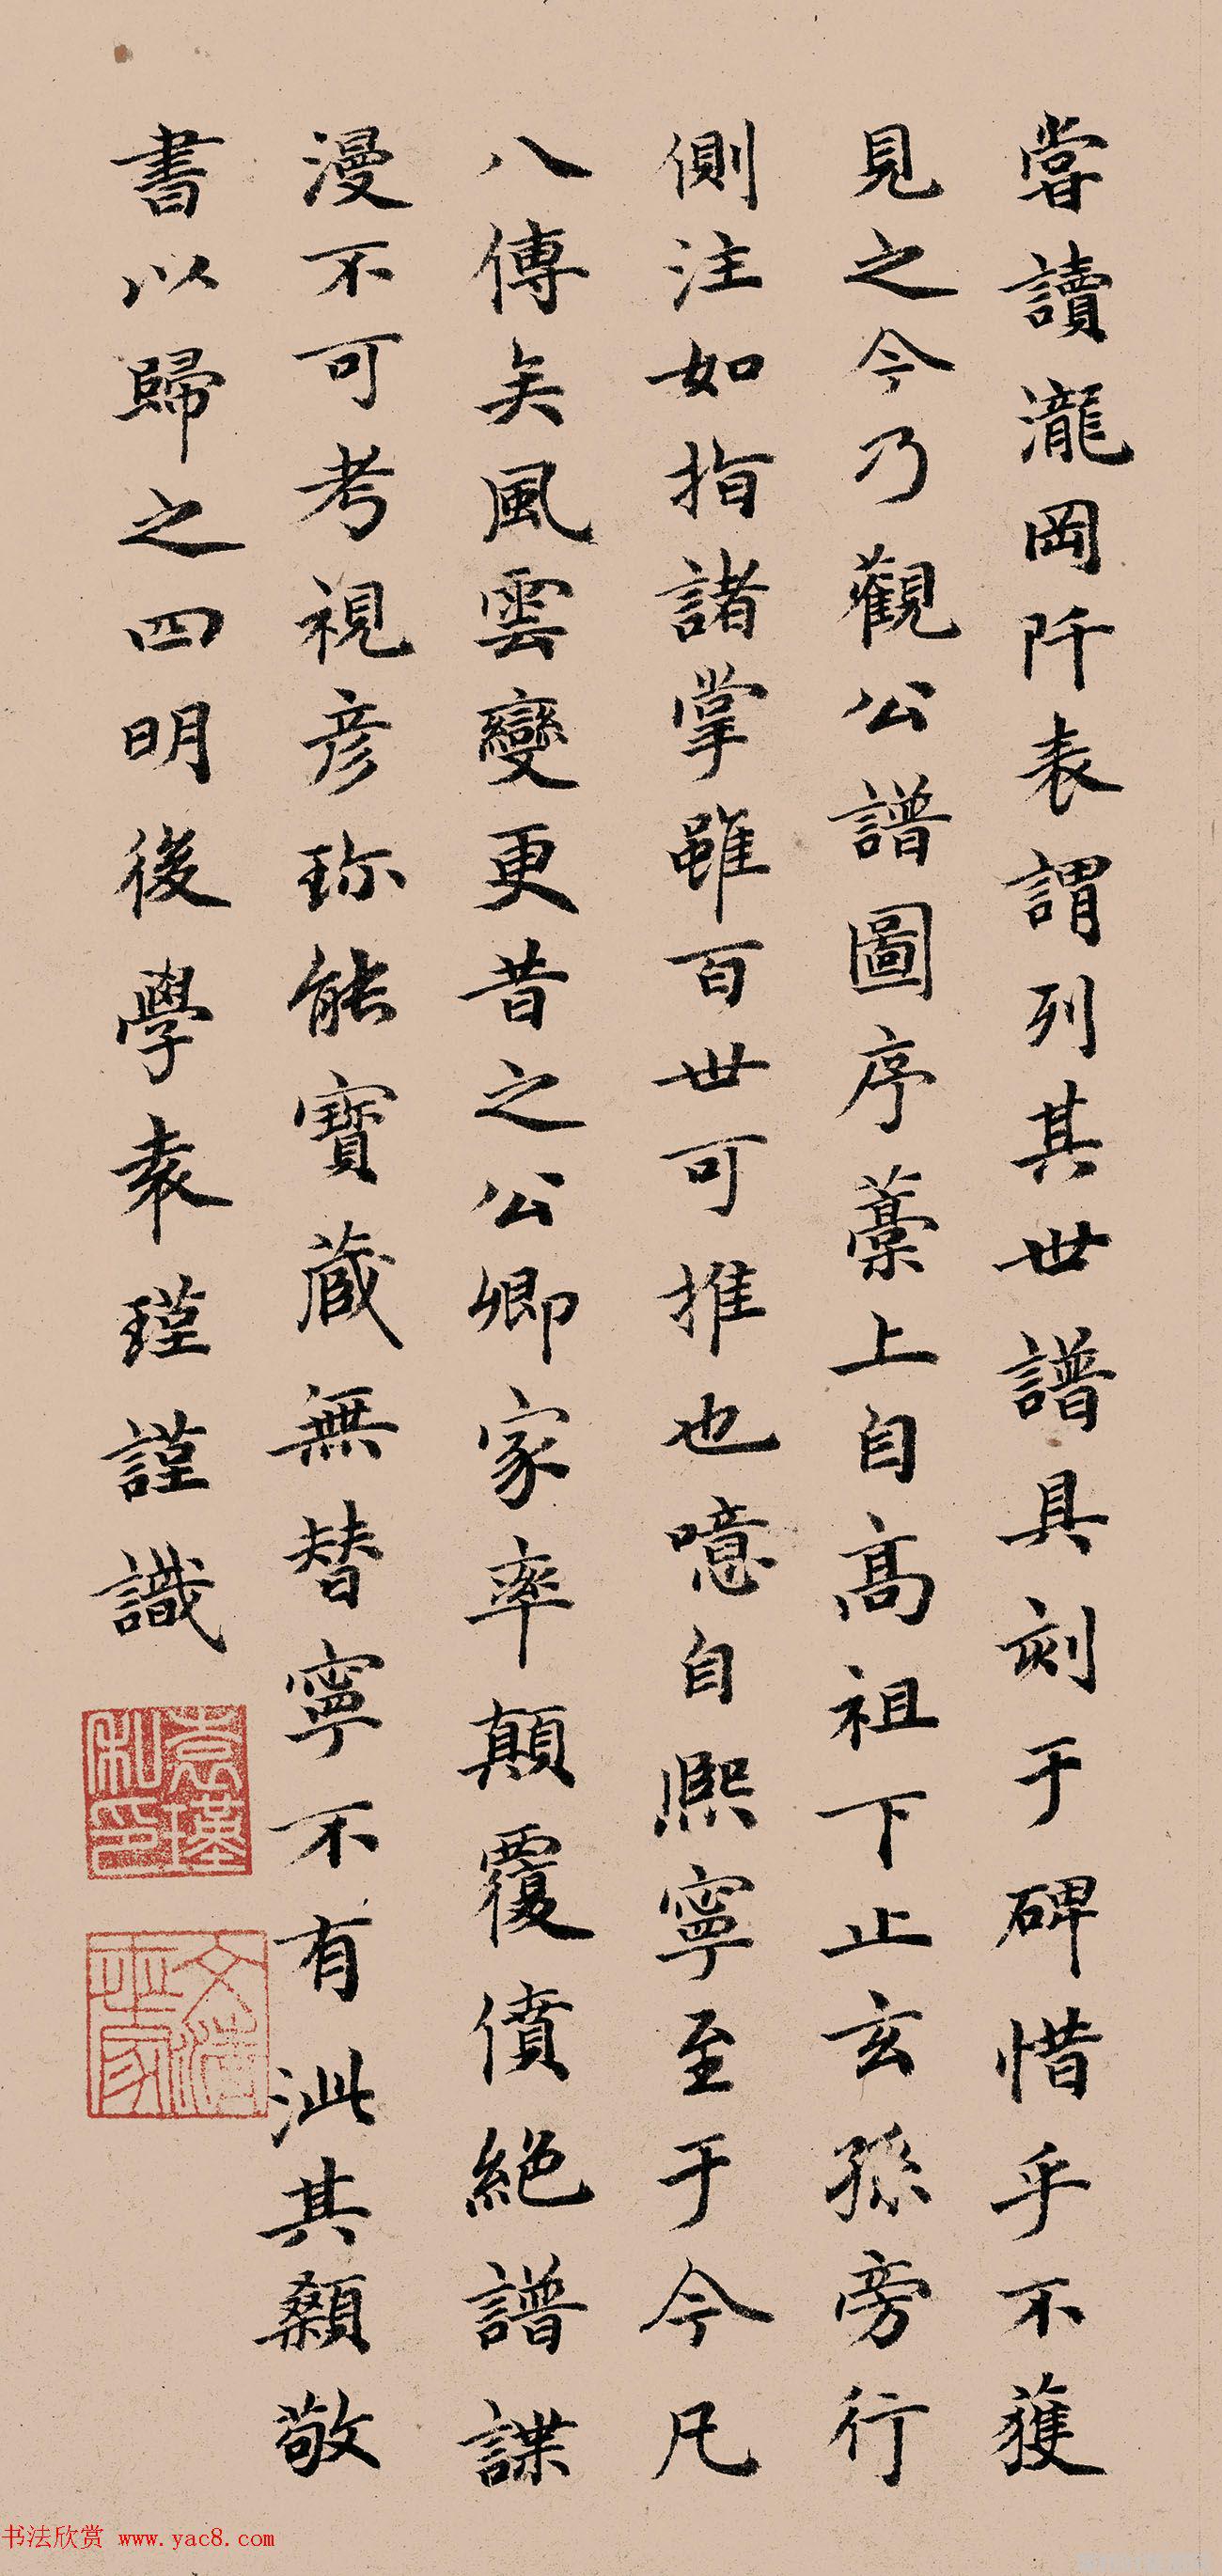 嘗讀瀧岡阡表謂列其世譜具刻于碑惜乎不獲
見之今乃觀公譜圖序藁上自高祖下止玄孫旁行
側注如指諸掌雖百世可推也噫自熈寧至于今凡
八傳矣風雲變更昔之公卿家率顛覆僨絕譜諜
漫不可考視彦珎能寶蔵無替寧不有泚其顙敬
書以歸之四明後學袁瑾謹識
袁瑾私印
书法欣赏 www.yac8.com